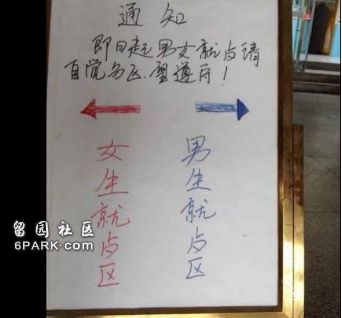 通知
即日起男女就占请
自觉分区.望遵守!
女生就占区
男生就占区
留园社区
6PARK.COM